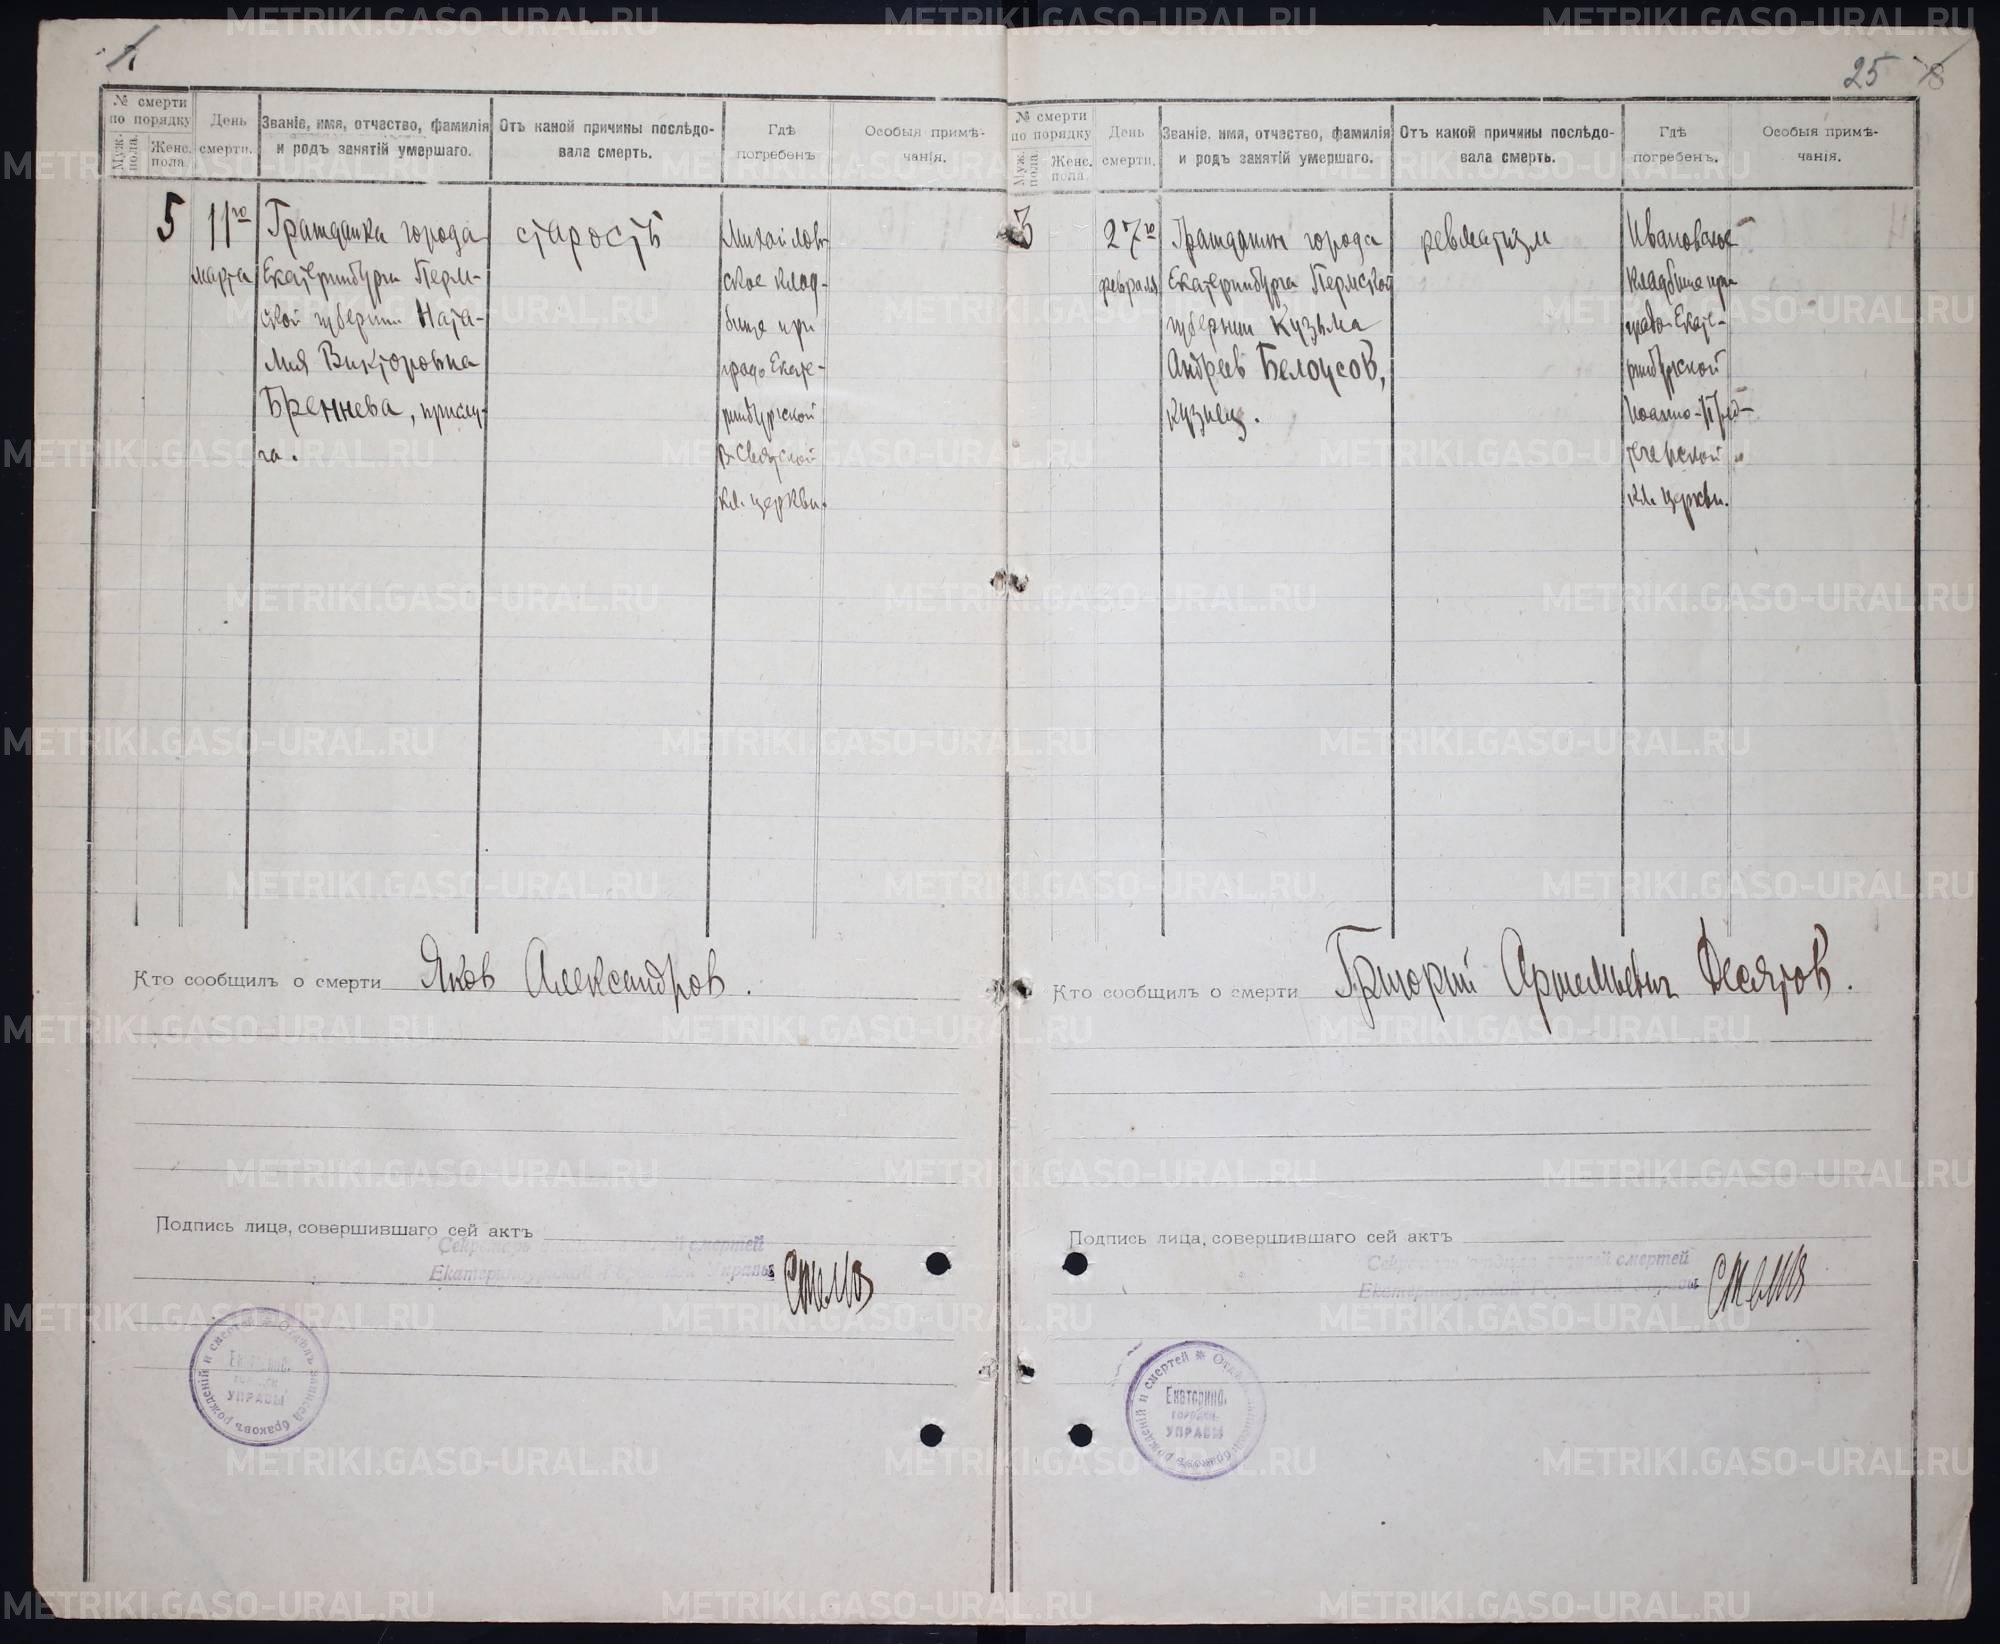 25
№ смерти
по порядку
Муж. пола.
Женс. пола.
День смерти.
Званіе, имя, отчество, фамилія
и родъ занятій умершаго.
Отъ какой причины послѣдо-
вала смерть.
Гдѣ
погребенъ
Особыя примѣ-
чанія.
5
11го
марта
Гражданка города
Екатеринбурга Перм-
ской губернии Ната-
лия Викторовна
Бреннева, прислу-
га.
старость
Михайлов-
ское клад-
бище при
градо Екате-
ринбургской
В-Святской
кл. церкви.
Кто сообщилъ о смерти Яков Александров.
Подпись лица, совершившаго сей актъ
Секретарь смертей
Екатеринбургской Городской Управы
Отдѣлъ записей браковъ рожденій и смертей
Екатеринб.
городск.
УПРАВЫ
№ смерти
по порядку
Муж. пола.
Женс. пола.
День
смерти.
Званіе, имя, отчество, фамилія
и родъ занятій умершаго.
Отъ какой причины послѣдо-
вала смерть.
Гдѣ
погребенъ.
Особыя примѣ-
чанія.
3
27го
февраля
Гражданин города
Екатеринбурга Пермской
губернии Кузьма
Андреев Белоусов,
кузнец.
ревматизм
Ивановское
кладбище при
градо-Екате-
ринбургской
Иоанно-Пред-
теченской
кл. церкви.
Кто сообщилъ о смерти Григорий Артемьевич Десятов.
Подпись лица, совершившаго сей актъ
Секретарь записей смертей
Екатеринбургской Городской Управы
Отдѣлъ записей браковъ рожденій и смертей
Екатеринб.
городск.
УПРАВЫ
METRIKI.GASO-URAL.RU